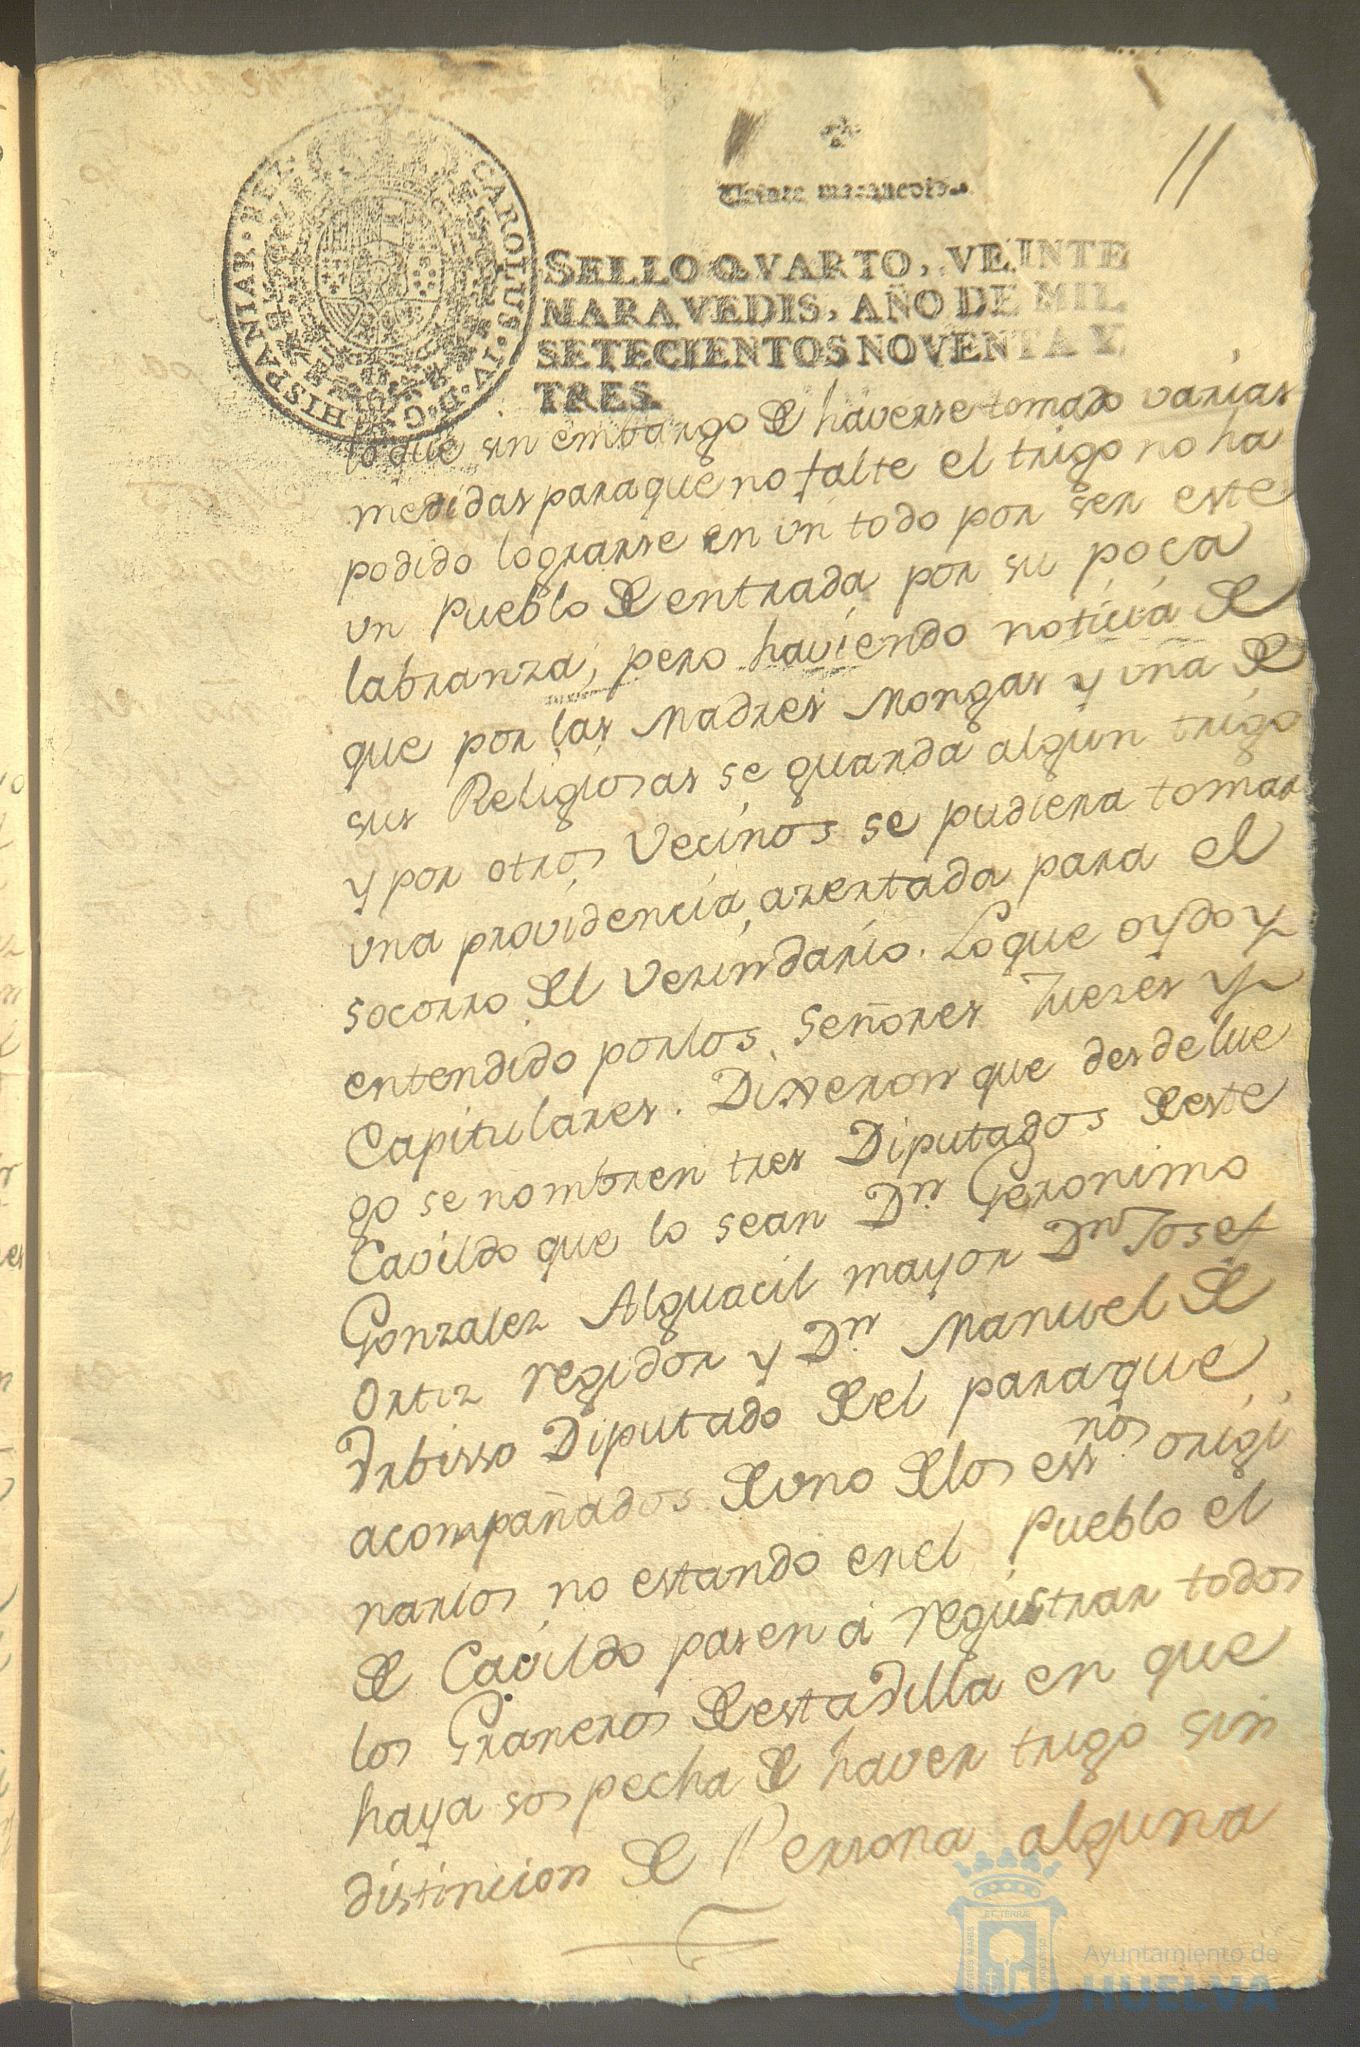 11
Veinte maravedis.
SELLO QVARTO, VEINTE
MARAVEDIS, AÑO DE MIL
SETECIENTOS NOVENTA Y
TRES.
CAROLUS·IV·D·G·HISPANIAR·REX·
lo que sin embargo de haverse tomado varias
medidas paraque no falte el trigo no ha
podido lograrse en un todo por ser este
un Pueblo de entrada por su poca
labranza, pero haviendo noticia de
que por las Madres Mongas y una de
sus Religiosas se guarda algun trigo
y por otros Vecinos se pudiera tomar
una providencia azertada para el
socorro del Vecindario. Loque oydo y
entendido porlos Señores Juezes y
Capitulares. Dixeron que desdelue
go se nombren tres Diputados deeste
Cavildo que lo sean Dn Geronimo
Gonzalez Alguacil mayor Dn Josef
Ortiz regidor y Dn Manuel de
Diputado deel paraque
acompañados deuno delos essnos origi
narios no estando enel Pueblo el
de Cavildo pasen á registrar todos
los Graneros deestaVilla en que
haya sospecha de haver trigo sin
distincion de Persona alguna
ET TERRÆ
Ayuntamiento de
HUELVA